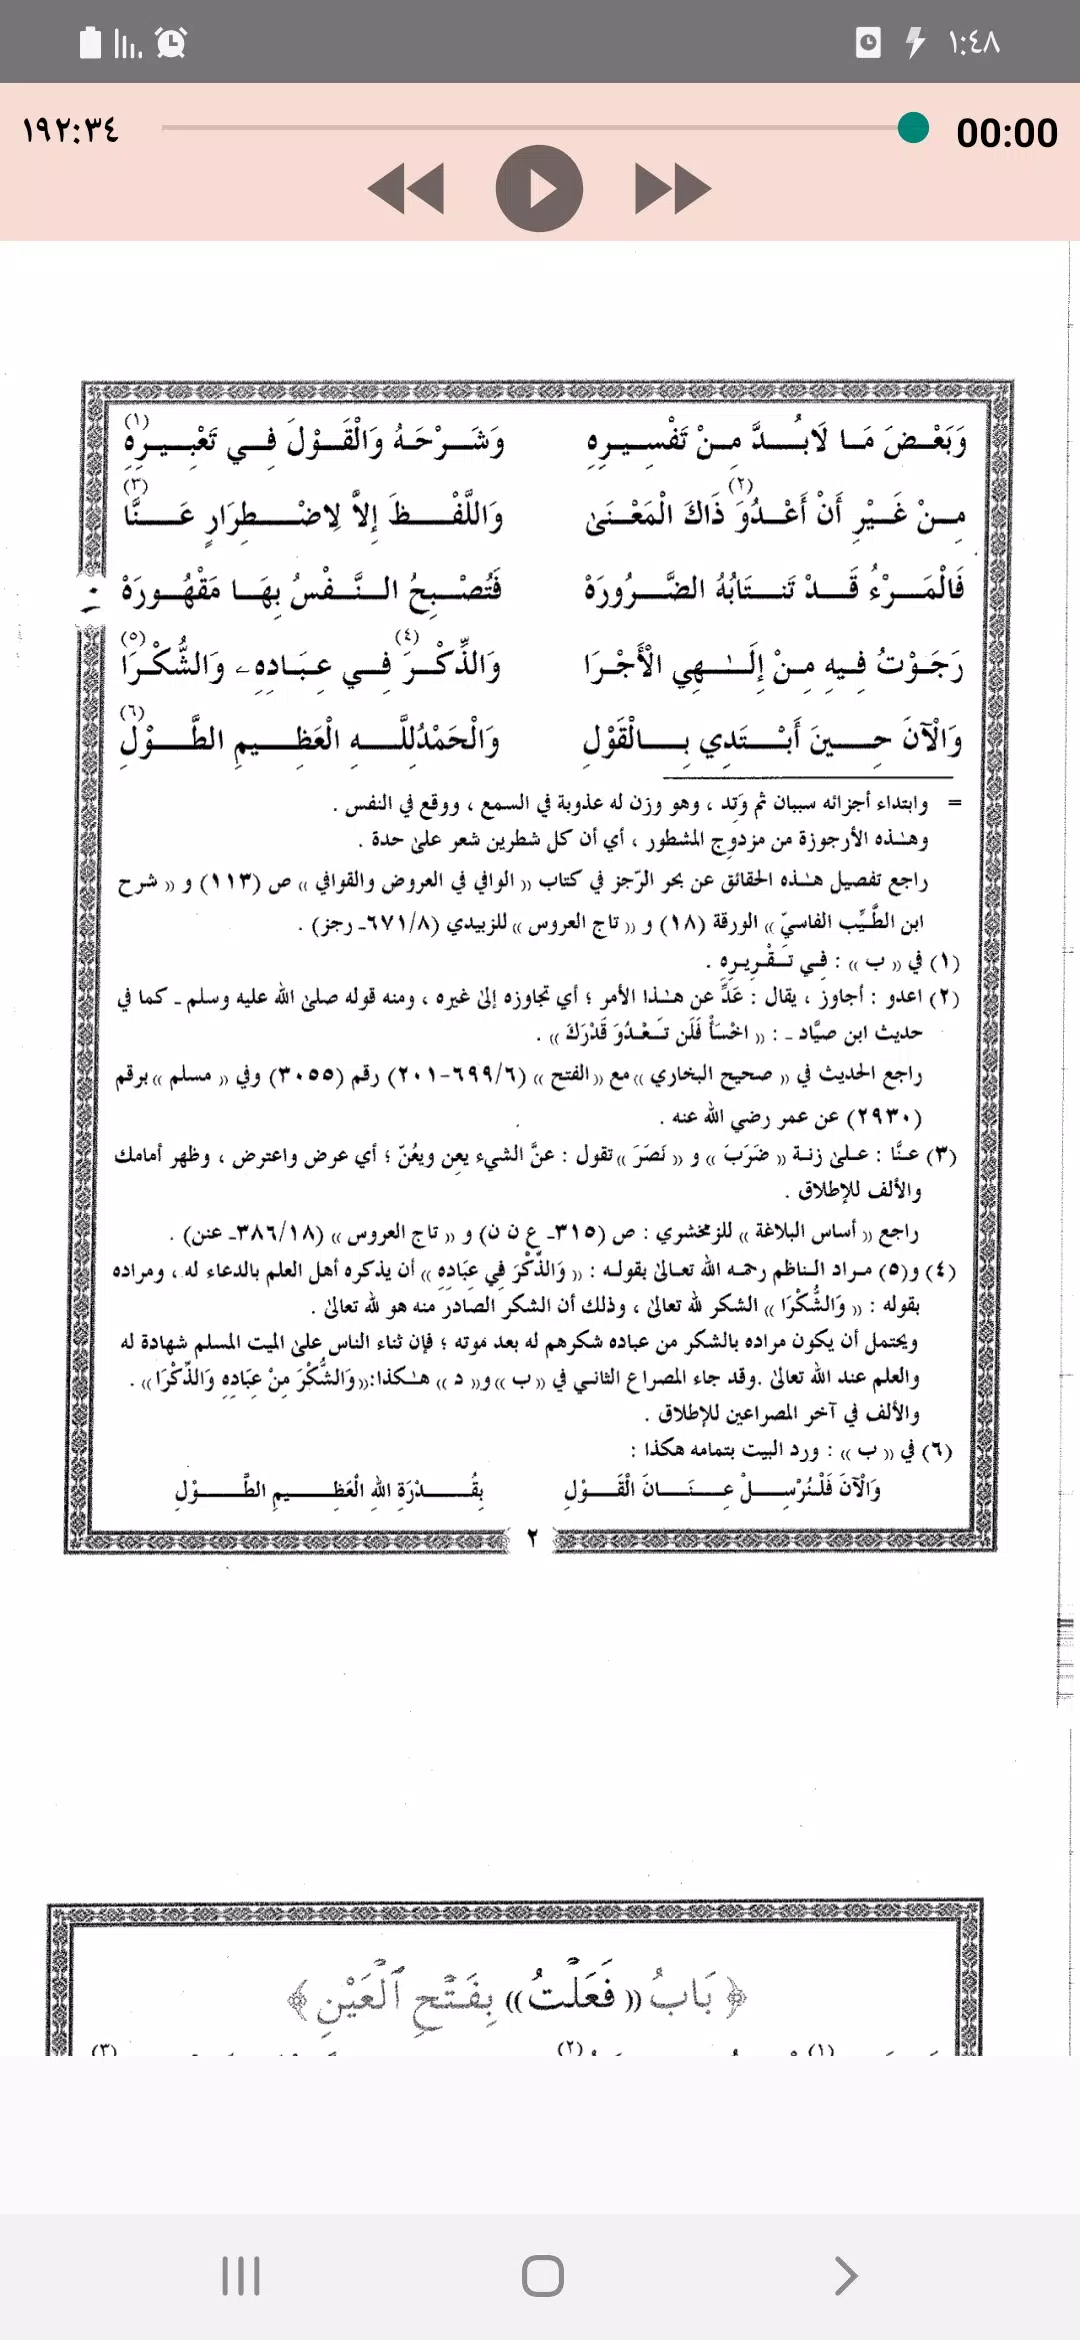 ١:٤٨
١٩٢:٣٤
00:00
وَبَعْضَ مَا لَابُدَّ مِنْ تَفْسِيرِهِ وَشَرْحَهُ وَالْقَوْلَ فِي تَعْبِيرِهِ (١)
مِنْ غَيْرِ أَنْ أَعْدُوَ (٢) ذَاكَ الْمَعْنَىٰ وَاللَّفْظَ إِلاَّ لِاضْطِرَارٍ عَنَّا (٣)
فَالْمَرْءُ قَدْ تَنتَابُهُ الضَّرُورَهْ فَتُصْبِحُ النَّفْسُ بِهَا مَقْهُورَهْ
رَجَوْتُ فِيهِ مِنْ إِلَـٰهِي الْأَجْرَا وَالذِّكْرَ (٤) فِي عِبَادِهِ وَالشُّكْرَا (٥)
وَالْآنَ حِينَ أَبْتَدِي بِالْقَوْلِ وَالْحَمْدُلِلَّهِ الْعَظِيمِ الطَّوْلِ (٦)
= وابتداء أجزائه سببان ثم وَتِد ، وهو وزن له عذوبة في السمع ، ووقع في النفس .
وهـٰذه الأرجوزة من مزدوج المشطور ، أي أن كل شطرين شعر علىٰ حدة .
راجع تفصيل هـٰذه الحقائق عن بحر الرّجز في كتاب (( الوافي في العروض والقوافي )) ص (١١٣) و (( شرح
ابن الطَّيِّب الفاسيّ )) الورقة (١٨) و (( تاج العروس )) للزبيدي (٦٧١/٨ـ رجز) .
(١) في (( ب )) : فِي تَقْرِيرِهِ .
(٢) اعدو : أجاوز ، يقال : عَدِّ عن هـٰذا الأمر ؛ أي تجاوزه إلىٰ غيره ، ومنه قوله صلىٰ الله عليه وسلم ـ كما في
حديث ابن صيَّاد ـ : (( اخْسَأْ فَلَن تَعْدُوَ قَدْرَكَ )) .
راجع الحديث في (( صحيح البخاري )) مع (( الفتح )) (٦٩٩/٦-٢٠١) رقم (٣٠٥٥) وفي (( مسلم )) برقم
(٢٩٣٠) عن عمر رضي الله عنه .
(٣) عنَّا : علىٰ زنة (( ضَرَبَ )) و (( نَصَرَ )) تقول : عنَّ الشيء يعِن ويعُنّ ؛ أي عرض واعترض ، وظهر أمامك
والألف للإطلاق .
راجع (( أساس البلاغة )) للزمخشري : ص (٣١٥ـ ع ن ن) و (( تاج العروس )) (٣٨٦/١٨ـ عنن) .
(٤) و(٥) مراد الناظم رحمه الله تعالىٰ بقوله : (( وَالذِّكْرَ فِي عِبَادِهِ )) أن يذكره أهل العلم بالدعاء له ، ومراده
بقوله : (( وَالشُّكْرَا )) الشكر لله تعالىٰ ، وذلك أن الشكر الصادر منه هو لله تعالىٰ .
ويحتمل أن يكون مراده بالشكر من عباده شكرهم له بعد موته ؛ فإن ثناء الناس علىٰ الميت المسلم شهادة له
والعلم عند الله تعالىٰ . وقد جاء المصراع الثاني في (( ب )) و(( د )) هـٰكذا: (( وَالشُّكْرَ مِنْ عِبَادِهِ وَالذِّكْرَا )) .
والألف في آخر المصراعين للإطلاق .
(٦) في (( ب )) : ورد البيت بتمامه هكذا :
وَالْآنَ فَلْنُرْسِلْ عِنَانَ الْقَوْلِ بِقُدْرَةِ اللهِ الْعَظِيمِ الطَّوْلِ
٢
﴿ بَابُ (( فَعَلْتُ )) بِفَتْحِ ٱلْعَيْنِ ﴾
(١) (٢) (٣)